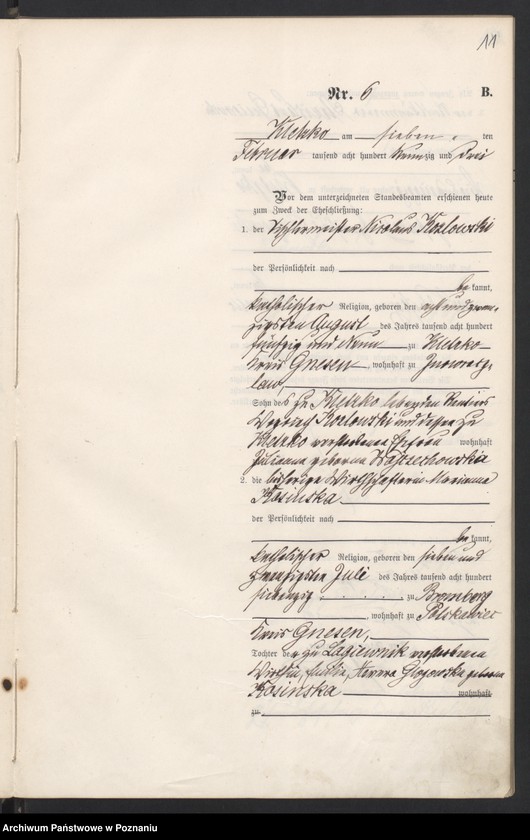 11
Nr. 6 B.
Kletzko am sieben den
Februar tausend acht hundert neunzig und drei
Vor dem unterzeichneten Standesbeamten erschienen heute
zum Zweck der Eheschließung:
1. der Tischlermeister Nicolaus Kozlowski
der Persönlichkeit nach
be kannt,
katholischer Religion, geboren den acht und zwan-
zigsten August des Jahres tausend acht hundert
fünfzig und neun zu Kletzko
Kreis Gnesen, wohnhaft zu Inowraz-
law,
Sohn des zu Kletzko lebenden Rentiers
Kozlowski und dessen zu
Kletzko verstorbenen Ehefrau wohnhaft
Julianna geborene Wojciechowska
2. die bisherige Wirthschafterin Marianna
Kosinska
der Persönlichkeit nach
be kannt,
katholischer Religion, geboren den sieben und
zwanzigsten Juli des Jahres tausend acht hundert
siebenzig zu Bromberg
, wohnhaft zu Polskawies
Kreis Gnesen,
Tochter der zu Lagiewnik verstorbenen
Wirthin, Glogowska geborene
Kosinska wohnhaft
zu
Archiwum Państwowe w Poznaniu